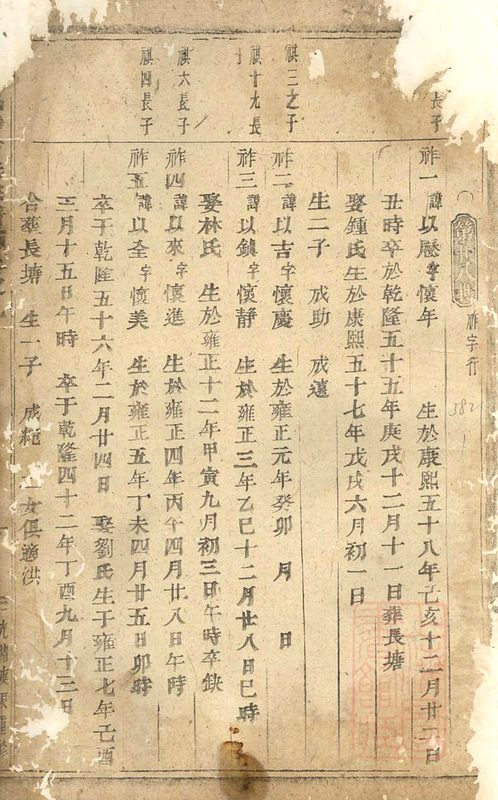 祚字行
382
長子
祚一諱以歷字懷年 生於康熙五十八年己亥十二月廿二日
丑時卒於乾隆五十五年庚戌十二月十一日葬長塘
娶鍾氏生於康熙五十七年戊戌六月初一日
生二子 成助 成遠
祺三之子
祚二諱以吉字懷慶 生於雍正元年癸卯 月 日
祺十九長子
祚三諱以鎮字懷靜 生於雍正三年乙巳十二月廿八日巳時
娶林氏 生於雍正十二年甲寅九月初三日午時卒缺
祺六長子
祚四諱以來字懷進 生於雍正四年丙午四月廿八日午時
祺四長子
祚五諱以全字懷美 生於雍正五年丁未四月廿五日卯時
卒于乾隆五十六年二月廿四日 娶劉氏生于雍正七年己酉
三月十五日午時 卒于乾隆四十二年丁酉九月十三日
合葬長塘 生一子 成 女俱適洪